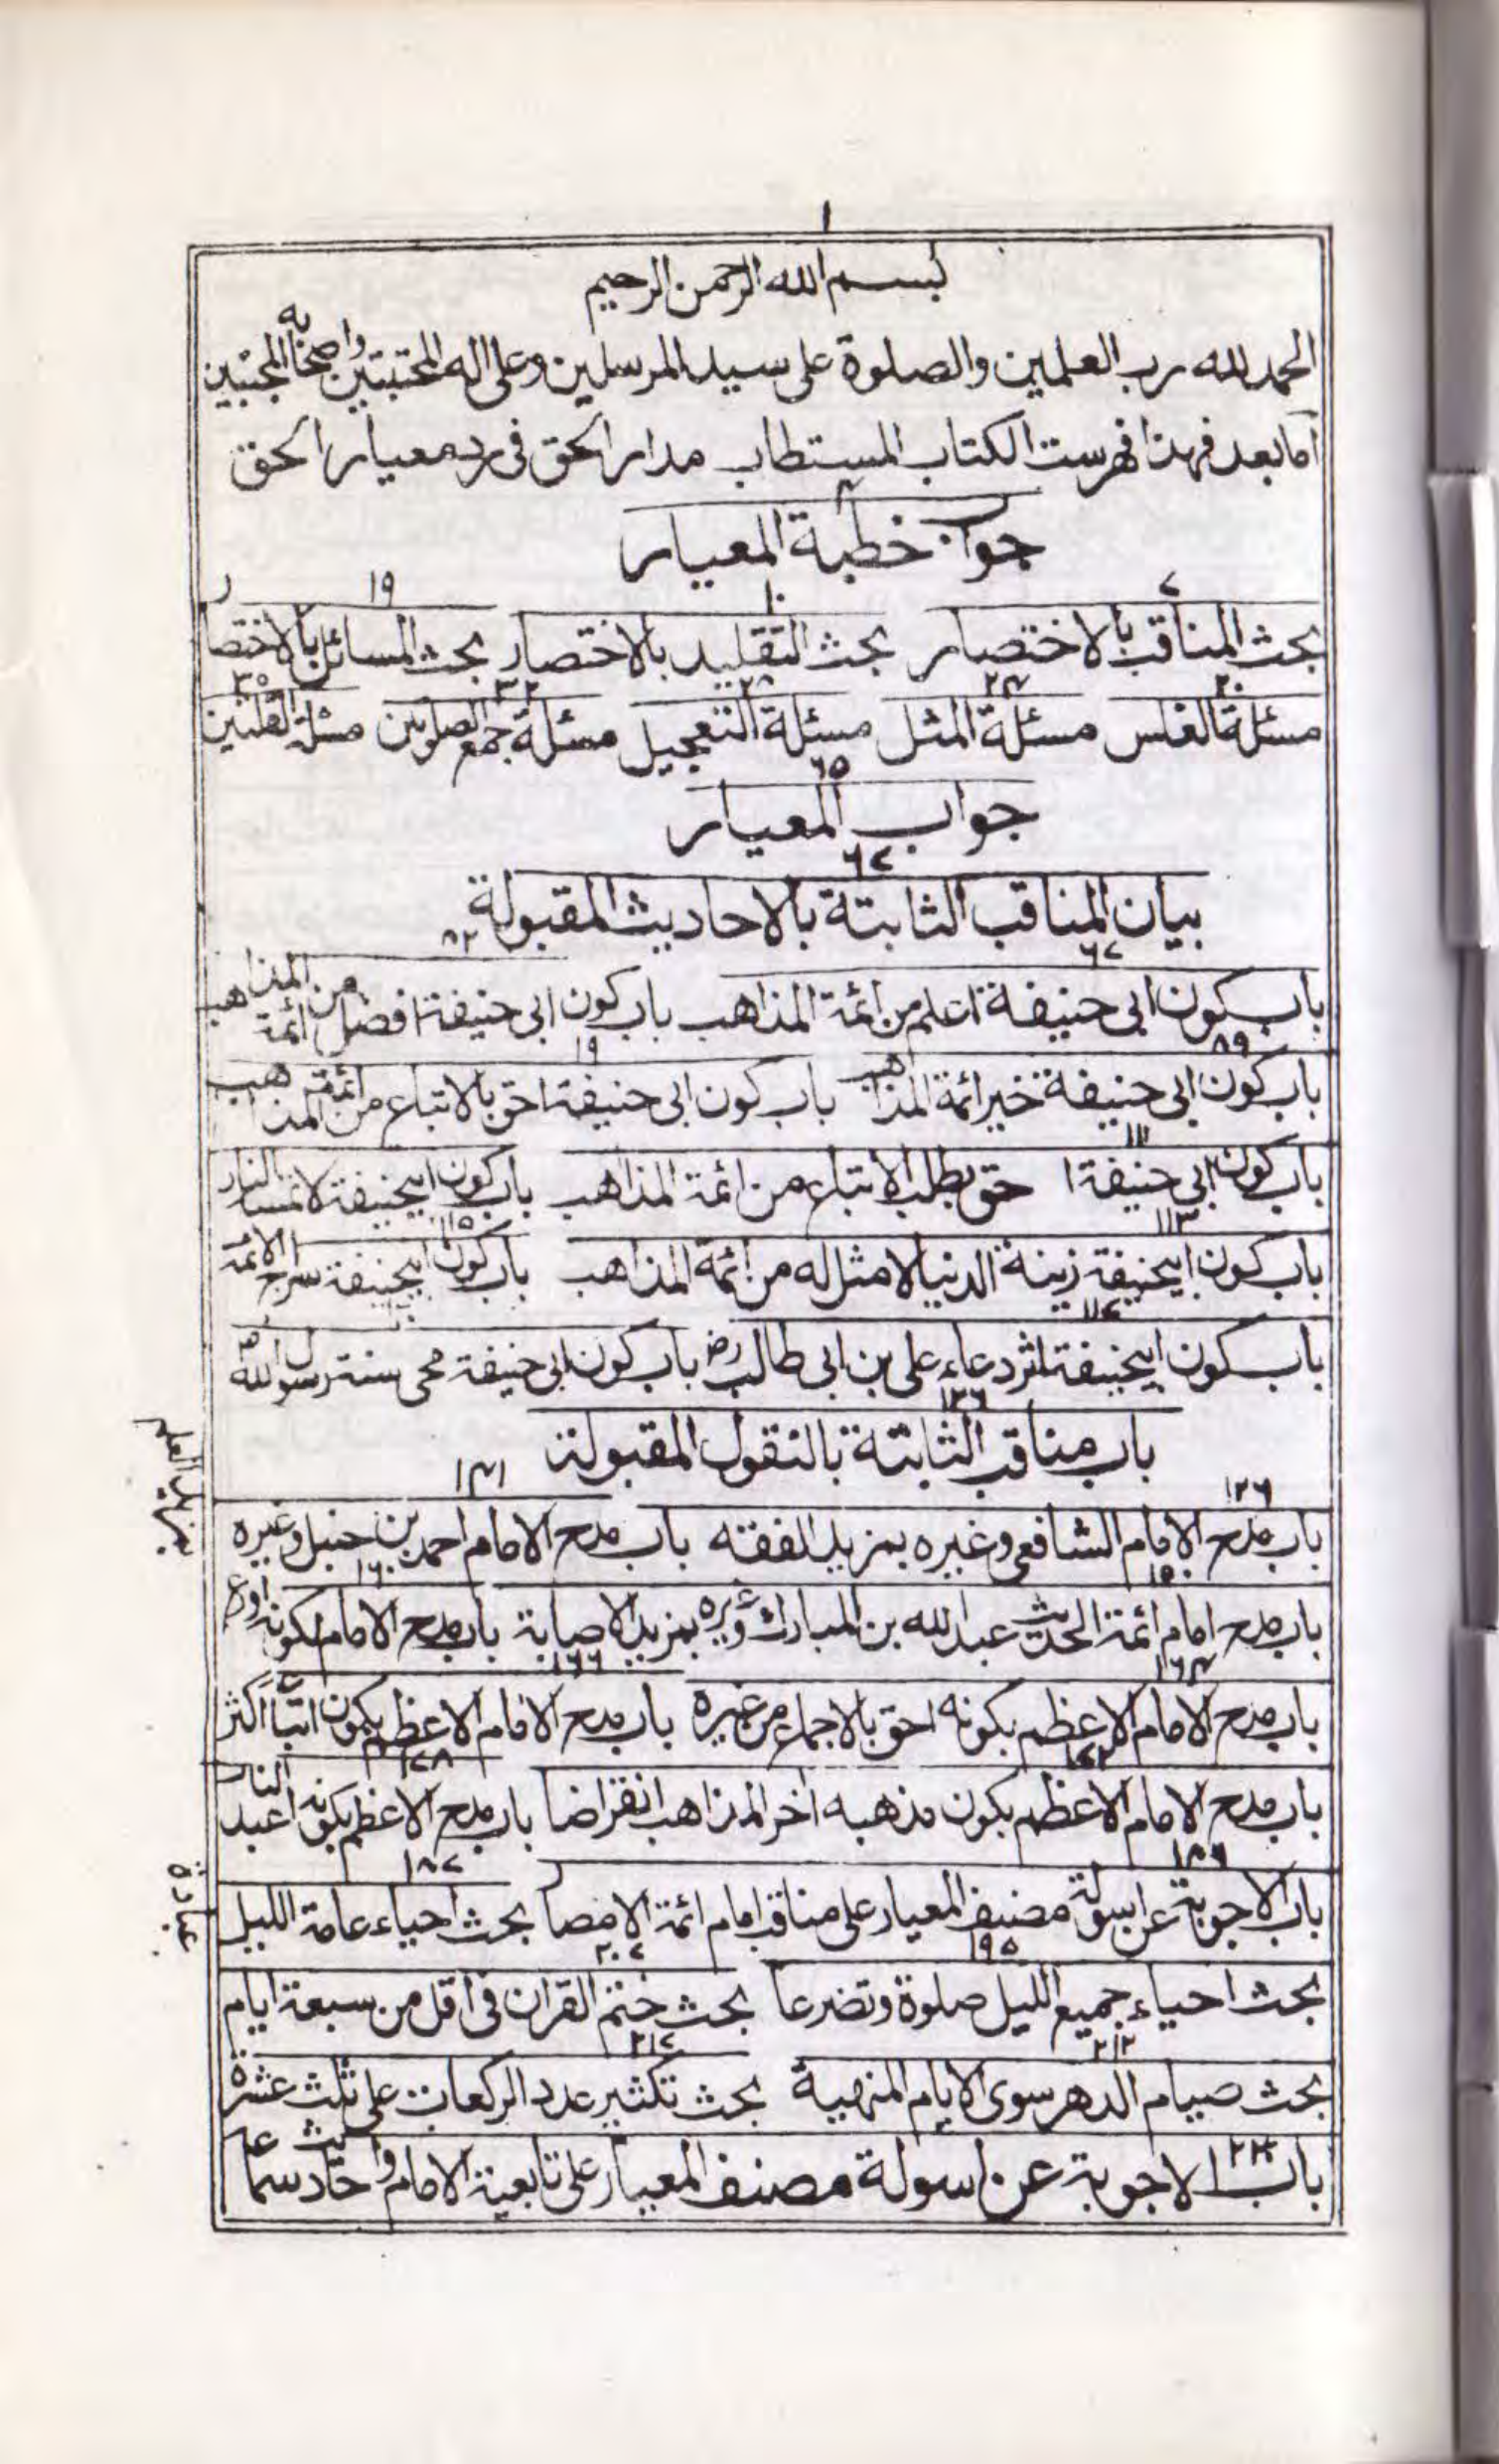 ١
بسم الله الرحمن الرحيم
الحمد لله رب العلمين والصلوة على سيد المرسلين وعلى اله المجتبين واصحابه المجتبين
اما بعد فهذا فهرست الكتاب المستطاب مدار الحق فى رد معيار الحق
٤
جواب خطبة المعيار
٧ ١٠ ١٩
بحث المناقب بالاختصار بحث التقليد بالاختصار بحث المسائل بالاختصار
٢٠ ٢٤ ٢٨ ٣٢ ٣٥
مسئلة الغلس مسئلة المثل مسئلة التعجيل مسئلة جمع الصلوتين مسئلة القلتين
٦٥
جواب المعيار
٦٧
بيان المناقب الثابتة بالاحاديث المقبولة
٦٧ ٨٢
باب كون ابى حنيفة اعلم من ائمة المذاهب باب كون ابى حنيفة افضل من ائمة المذاهب
٨٩
باب كون ابى حنيفة خير ائمة المذاهب باب كون ابى حنيفة احق بالاتباع من ائمة المذاهب
١١١
باب كون ابى حنيفة احق بطلب الاتباع من ائمة المذاهب باب كون ابيحنيفة لا تمسه النار
١١٣ ١١٥
باب كون ابيحنيفة زينة الدنيا لا مثل له من ائمة المذاهب باب كون ابيحنيفة سراج الائمة
١١٧
باب كون ابيحنيفة اثر دعاء على بن ابى طالب رض باب كون ابى حنيفة محى سنة رسول الله ص
١٢٦
باب مناقب الثابتة بالنقول المقبولة
١٢٦ ١٤١
باب مدح الامام الشافعى وغيره بمزيد الفقه باب مدح الامام احمد بن حنبل وغيره
بمزيد العلم
١٥٠ ١٦٠
باب مدح امام ائمة الحديث عبد الله بن المبارك وغيره بمزيد الاصابة باب مدح الامام بكونه اورع
١٦٤ ١٦٦
باب مدح الامام الاعظم بكونه احق بالاجماع من غيره باب مدح الامام الاعظم بكون اتباعه اكثر
١٧٢ ١٧٨
باب مدح الامام الاعظم بكون مذهبه اخر المذاهب انقراضا باب مدح الاعظم بكونه اعبد الناس
عبادة
١٨٦ ١٨٧
باب الاجوبة عن اسولة مصنف المعيار على مناقب امام ائمة الامصار بحث احياء عامة الليل
١٩٥ ٢٠٧
بحث احياء جميع الليل صلوة وتضرعا بحث ختم القران فى اقل من سبعة ايام
٢١٢ ٢١٧
بحث صيام الدهر سوى الايام المنهية بحث تكثير عدد الركعات على ثلث عشرة
٢٢٣
باب الاجوبة عن اسولة مصنف المعيار على تابعية الامام واحاديث سماعه